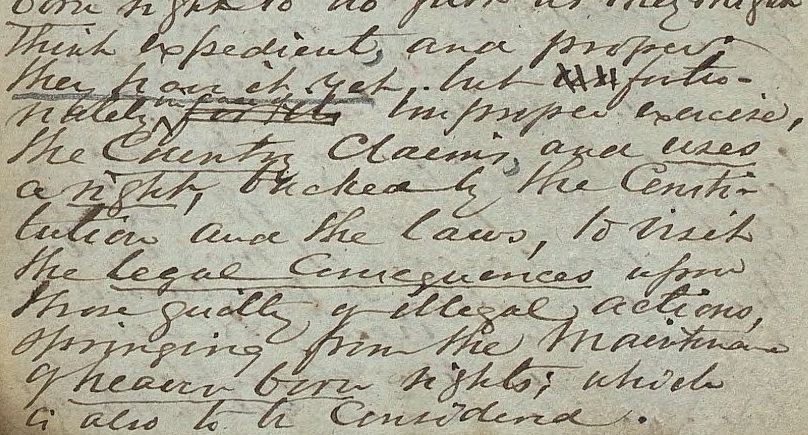 born right to do just as they might
think expedient, and proper.
they have it yet, but fortu-
nately, in case of improper exercise,
the Country Claims, and uses
a right, backed by the Consti-
tution and the laws, to visit
the legal Consequences upon
those guilty of illegal actions,
springing from the Maintenance
of heaven born rights; which
is also to be Considered.